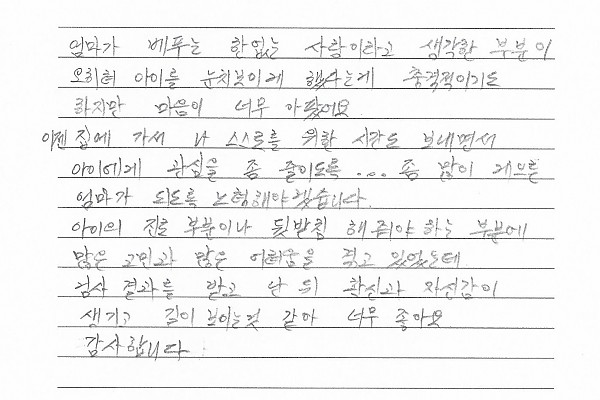 엄마가 베푸는 한없는 사랑이라고 생각한 부분이
오히려 아이를 눈치보이게 했다는게 충격적이기도
하지만 마음이 너무 아팠어요
이젠 집에 가서 나 스스로를 위한 시간도 보내면서
아이에게 관심을 좀 줄이도록... 좀 많이 게으른
엄마가 되도록 노력해야겠습니다.
아이의 진로 부분이나 뒷받침 해줘야 하는 부분에
많은 고민과 많은 어려움을 겪고 있었는데
검사 결과를 받고 난 뒤 확신과 자신감이
생기고 길이 보이는것 같아 너무 좋아요
감사합니다.